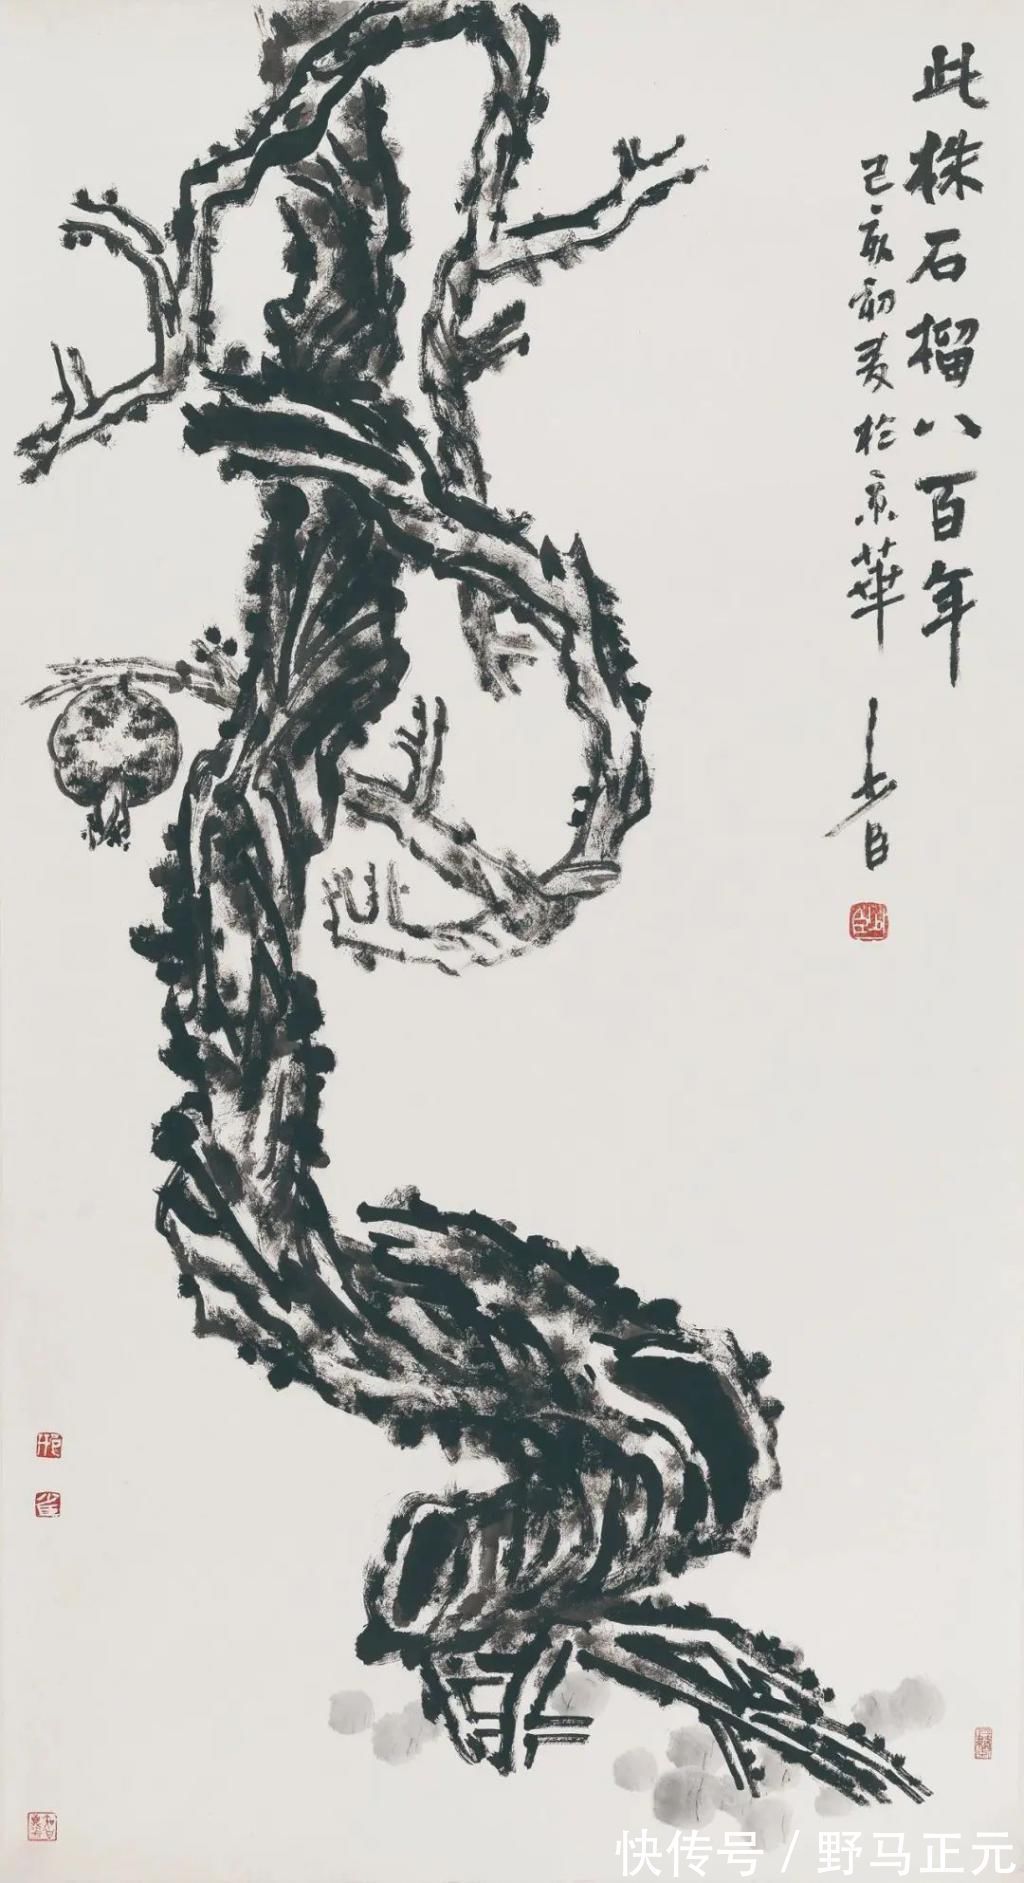 此株石榴八百年
己亥初夏於京華
少臣
快传号／野马正元